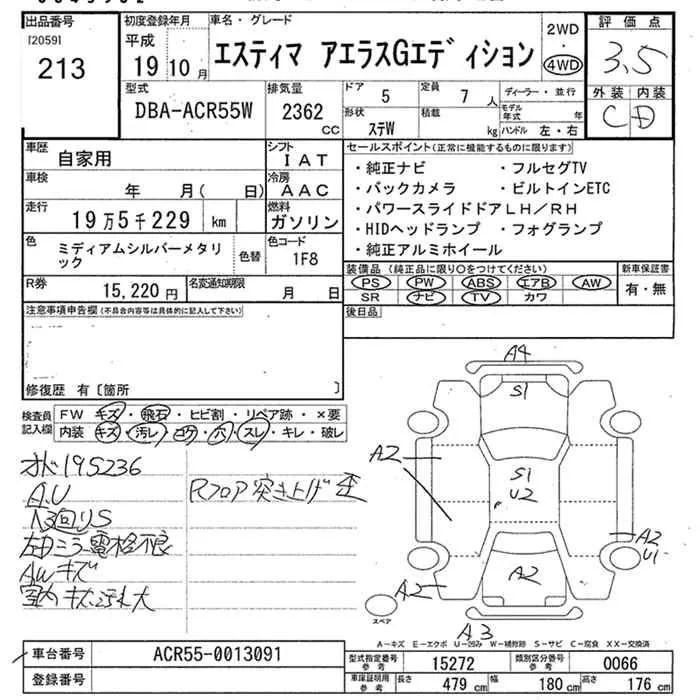 出品番号
[2059]
213
初度登録年月
平成
19 10 月
車名・グレード
エスティマ アエラスGエディション
2WD
・
4WD
評価点
3.5
外装 内装
C D
型式
DBA-ACR55W
排気量
2362
cc
ドア 5
形状 ステW
定員 7 人
積載 kg
ディーラー・並行
モデル年式 年
ハンドル 左・右
車歴
自家用
シフト
IAT
車検
年 月( 日)
冷房
AAC
走行
19万5千229 km
燃料
ガソリン
色
ミディアムシルバーメタリック
色替
色コード
1F8
R券
15,220 円
名変通知期限
月 日
セールスポイント(正常に機能するものに限ります)
・純正ナビ ・フルセグTV
・バックカメラ ・ビルトインETC
・パワースライドドアLH/RH
・HIDヘッドランプ ・フォグランプ
・純正アルミホイール
装備品(純正品に限り○をつけてください)
PS PW ABS エアB AW
SR ナビ TV カワ
新車保証書
有・無
後日品
注意事項申告欄(不具合内容等は具体的に記入して下さい)
修復歴 有〔箇所 〕
検査員記入欄
FW キズ・飛石・ヒビ割・リペア跡・×要
内装 キズ・汚レ・コゲ・穴・スレ・キレ・破レ
オド195236
A.U
左ドミラー電格不良
AWキズ
室内キズ汚れ大
Rフロア突き上げ歪
A4
S1
A2
S1
U2
A2
U1
A2
A2
A3
スペア
A－キズ E－エクボ U－凹み W－補修跡 S－サビ C－腐食 XX－交換済
車台番号
ACR55-0013091
登録番号
型式指定番号 参考
15272
類別区分番号 参考
0066
車庫証明用 参考
長さ 479 cm
幅 180 cm
高さ 176 cm